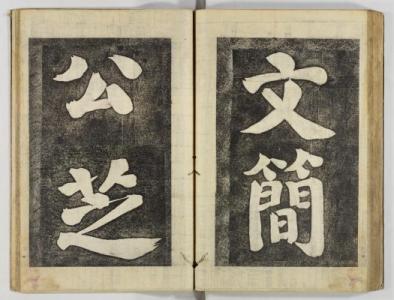 文簡
公芝